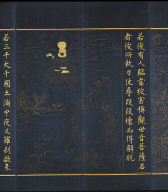 若復有人臨當被害稱觀世音菩薩名
者彼所執刀杖尋段段壞而得解脫
若三千大千國土滿中夜叉羅刹欲來